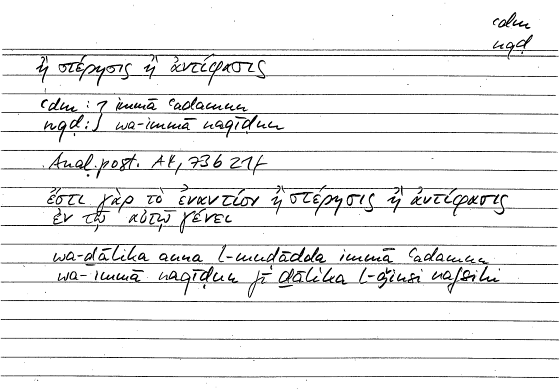 ʿdm
nqḍ
ἢ στέρησις ἢ ἀντίφασις
ʿdm : immā ʿadamun
nqḍ : wa-immā naqīḍun
Anal. post. A4, 73b 21f
ἔστι γὰρ τὸ ἐναντίον ἢ στέρησις ἢ ἀντίφασις
ἐν τῷ αὐτῷ γένει
wa-ḏālika anna l-muḍādda immā ʿadamun
wa-immā naqīḍun fī ḏālika l-ǧinsi nafsihi